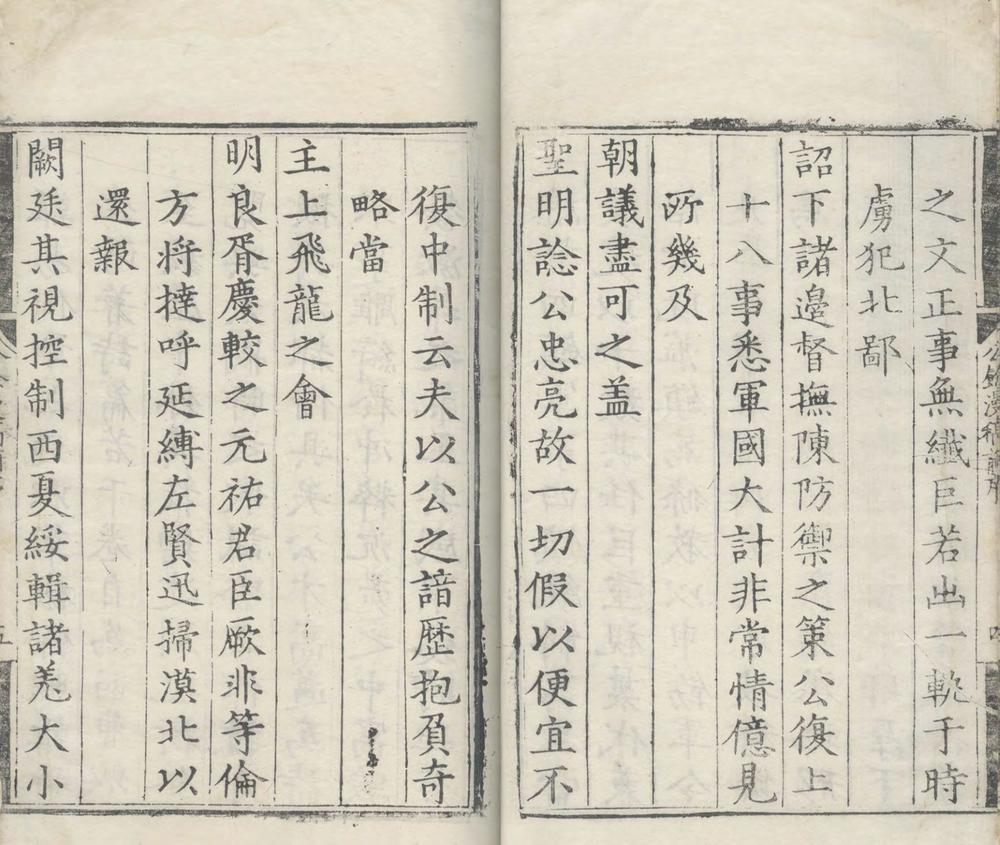 之文正事無纖巨若出一軌于時
虜犯北鄙
詔下諸邊督撫陳防禦之策公復上
十八事悉軍國大計非常情億見
所幾及
朝議盡可之盖
聖明諗公忠亮故一切假以便宜不
復中制云夫以公之諳歷抱負奇
略當
主上飛龍之會
明良胥慶較之元祐君臣厥非等倫
方將撻呼延縛左賢迅掃漠北以
還報
闕廷其視控制西夏綏輯諸羗大小